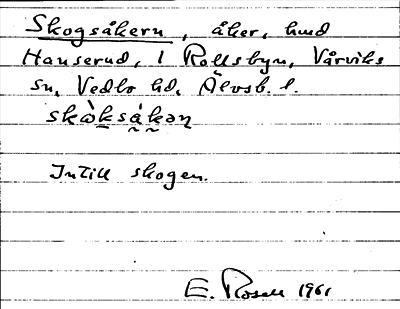 Skogsåkern, åker, hmd
Hanserud, 1 Rollsbyn, Vårviks
sn, Vedbo hd, Älvsb. l.
skò̀ksákəṇ
Intill skogen.
E. Rosell 1961